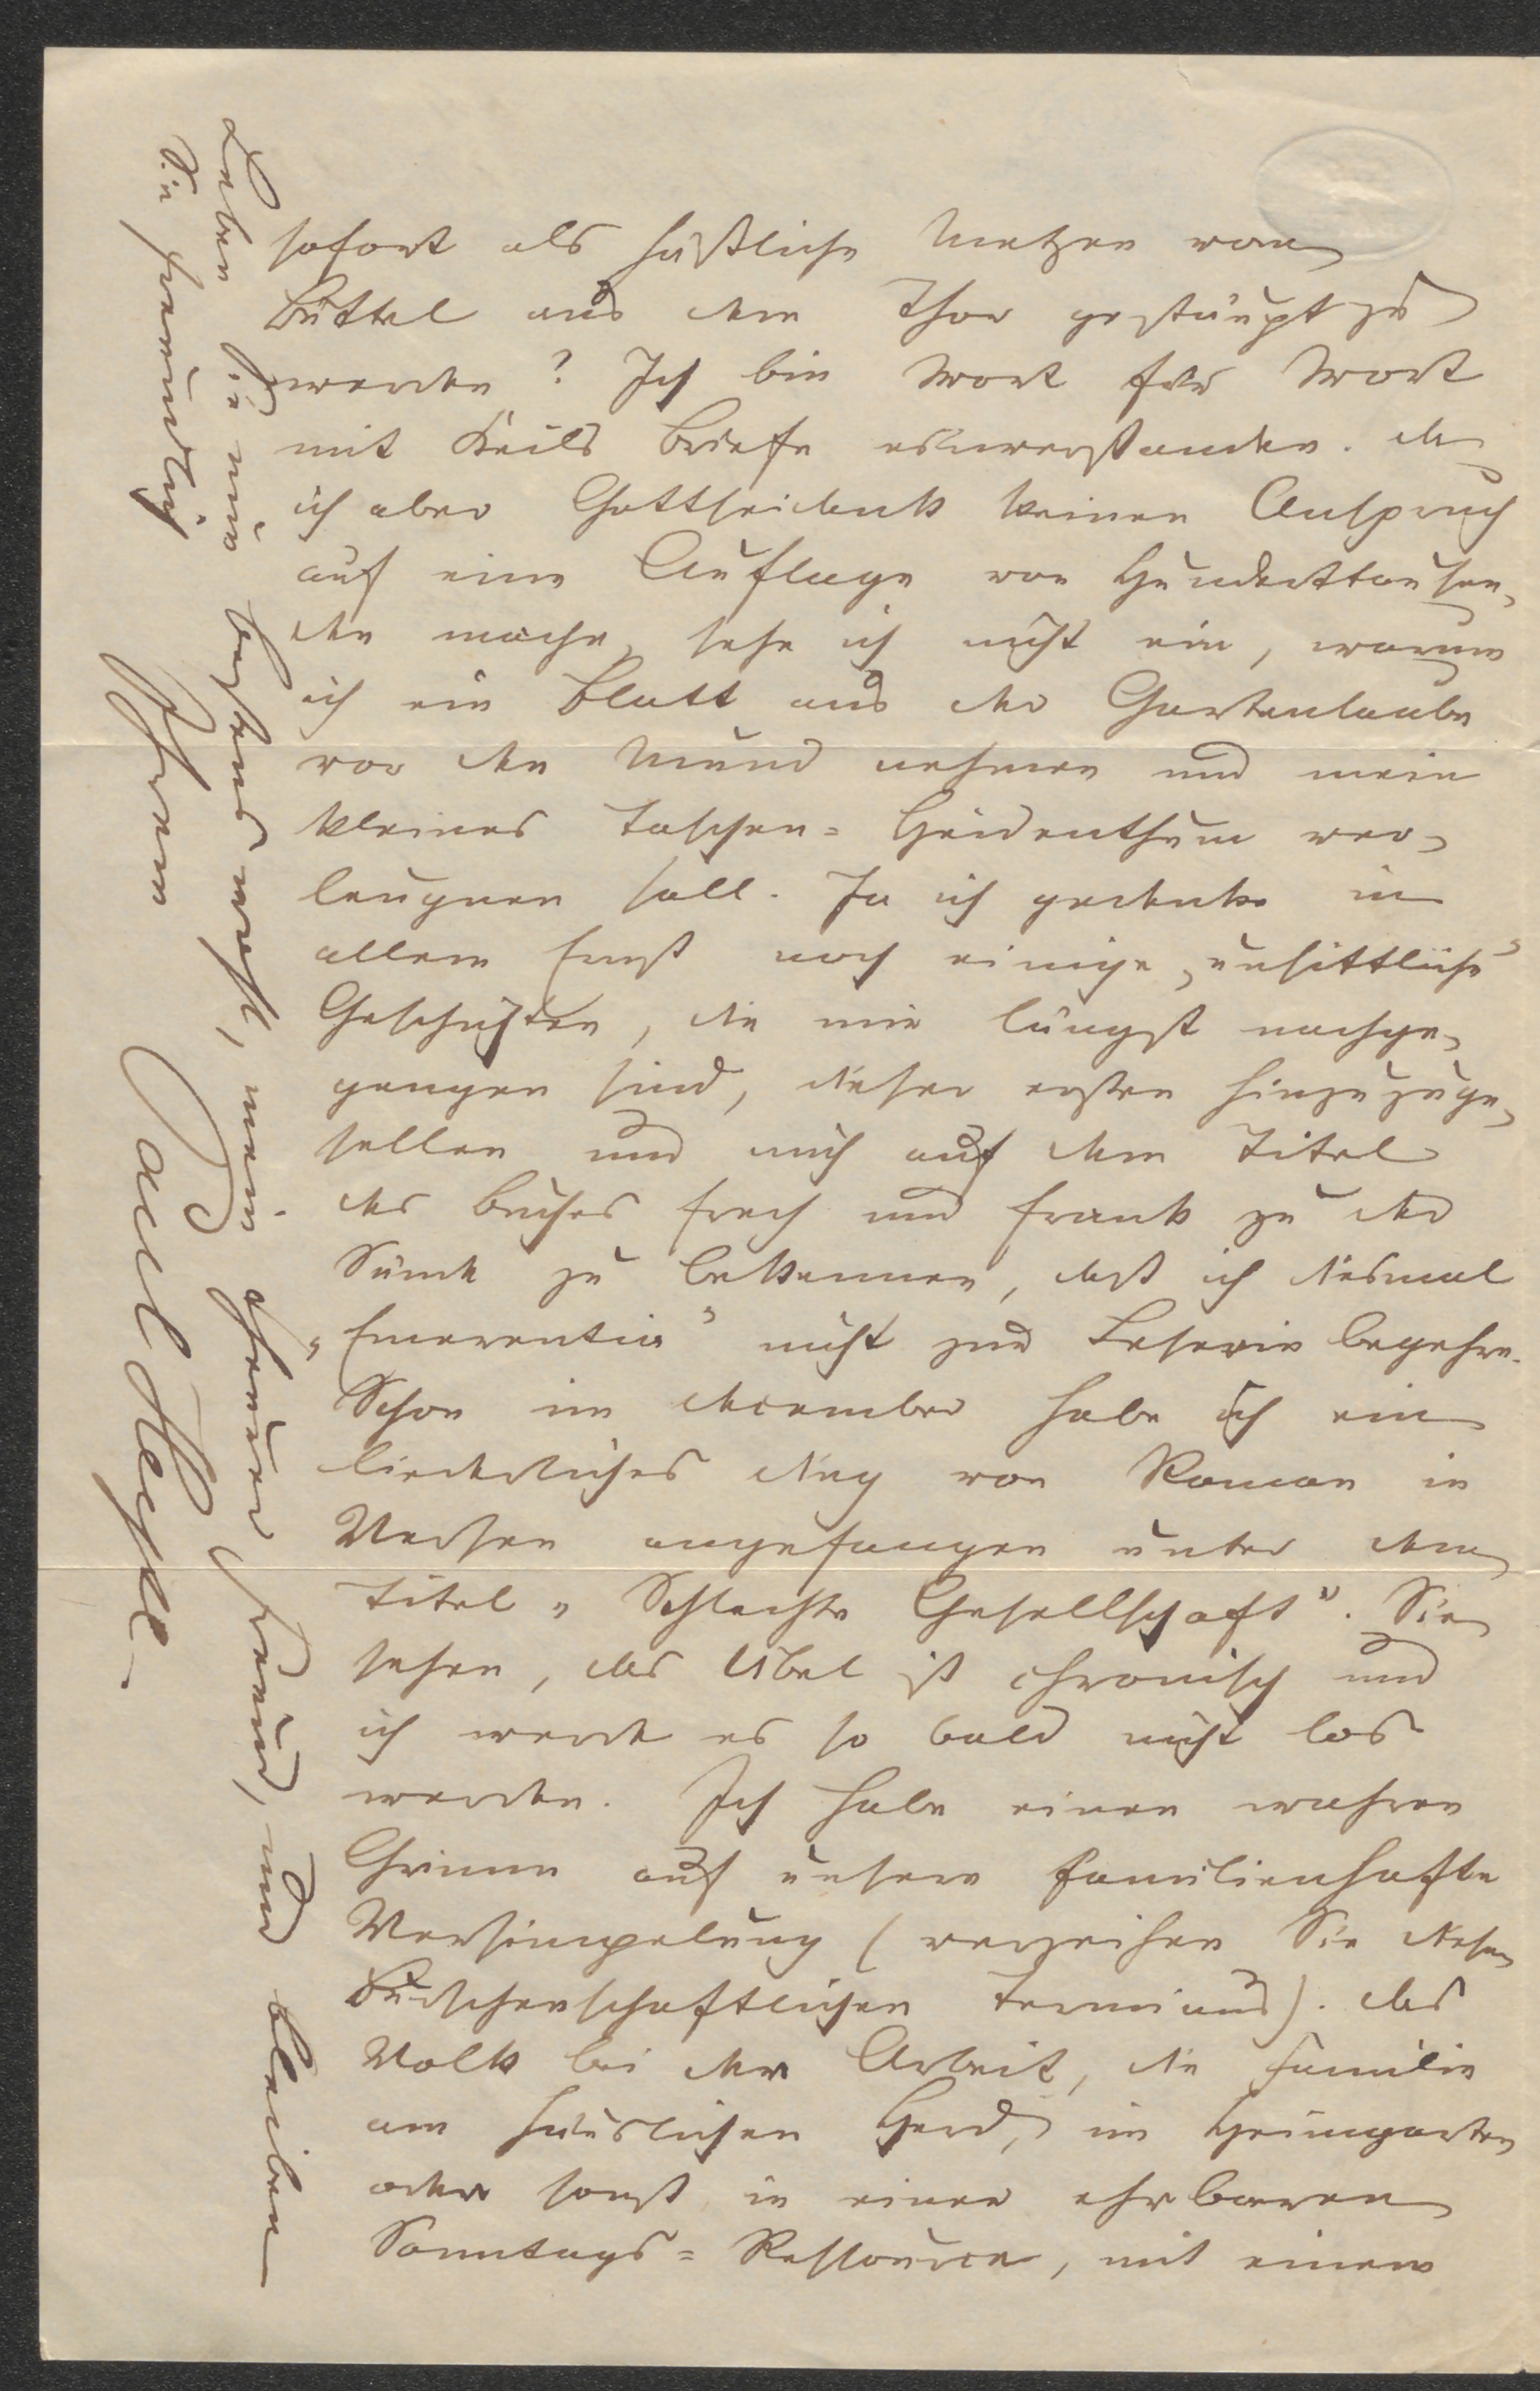 sofort als häßliche Metzen vom
Büttel aus dem Thor gestäupt zu
werden? Ich bin Wort für Wort
mit Keils Briefe einverstanden. Da
ich aber Gottseidank keinen Anspruch
auf eine Auflage von Hunderttausen-
den mache, sehe ich nicht ein, warum
ich ein Blatt aus der Gartenlaube
vor den Mund nehmen und mein
kleines Taschen-Heidenthum ver-
leugnen soll. Ja ich gedenke in
allem Ernst noch einige „unsittliche“
Geschichten, die mir längst nachge-
gangen sind, dieser ersten hinzuzuge-
sellen und mich auf dem Titel
des Buches frech und frank zu der
Sünde zu bekennen, daß ich diesmal
„Emerentia“ nicht zur Leserin begehre.
Schon im December habe ich ein
liederliches Ding von Roman in
Versen angefangen unter dem
Titel „Schlechte Gesellschaft“. Sie
sehen, das Übel ist chronisch und
ich werde es so bald nicht los
werden. Ich habe einen wahren
Grimm auf unsere familienhafte
Versimpelung (verzeihen Sie diesen
burschenschaftlichen Terminus). Das
Volk bei der Arbeit, die Familie
am häuslichen Herd, im Heimgarten
oder sonst in einer ehrbaren
Sonntags-Ressource, mit einem
Leben Sie nun bestens wohl, mein theurer Freund, und bleiben
Sie freundlich
Ihrem
Paul Heyse.